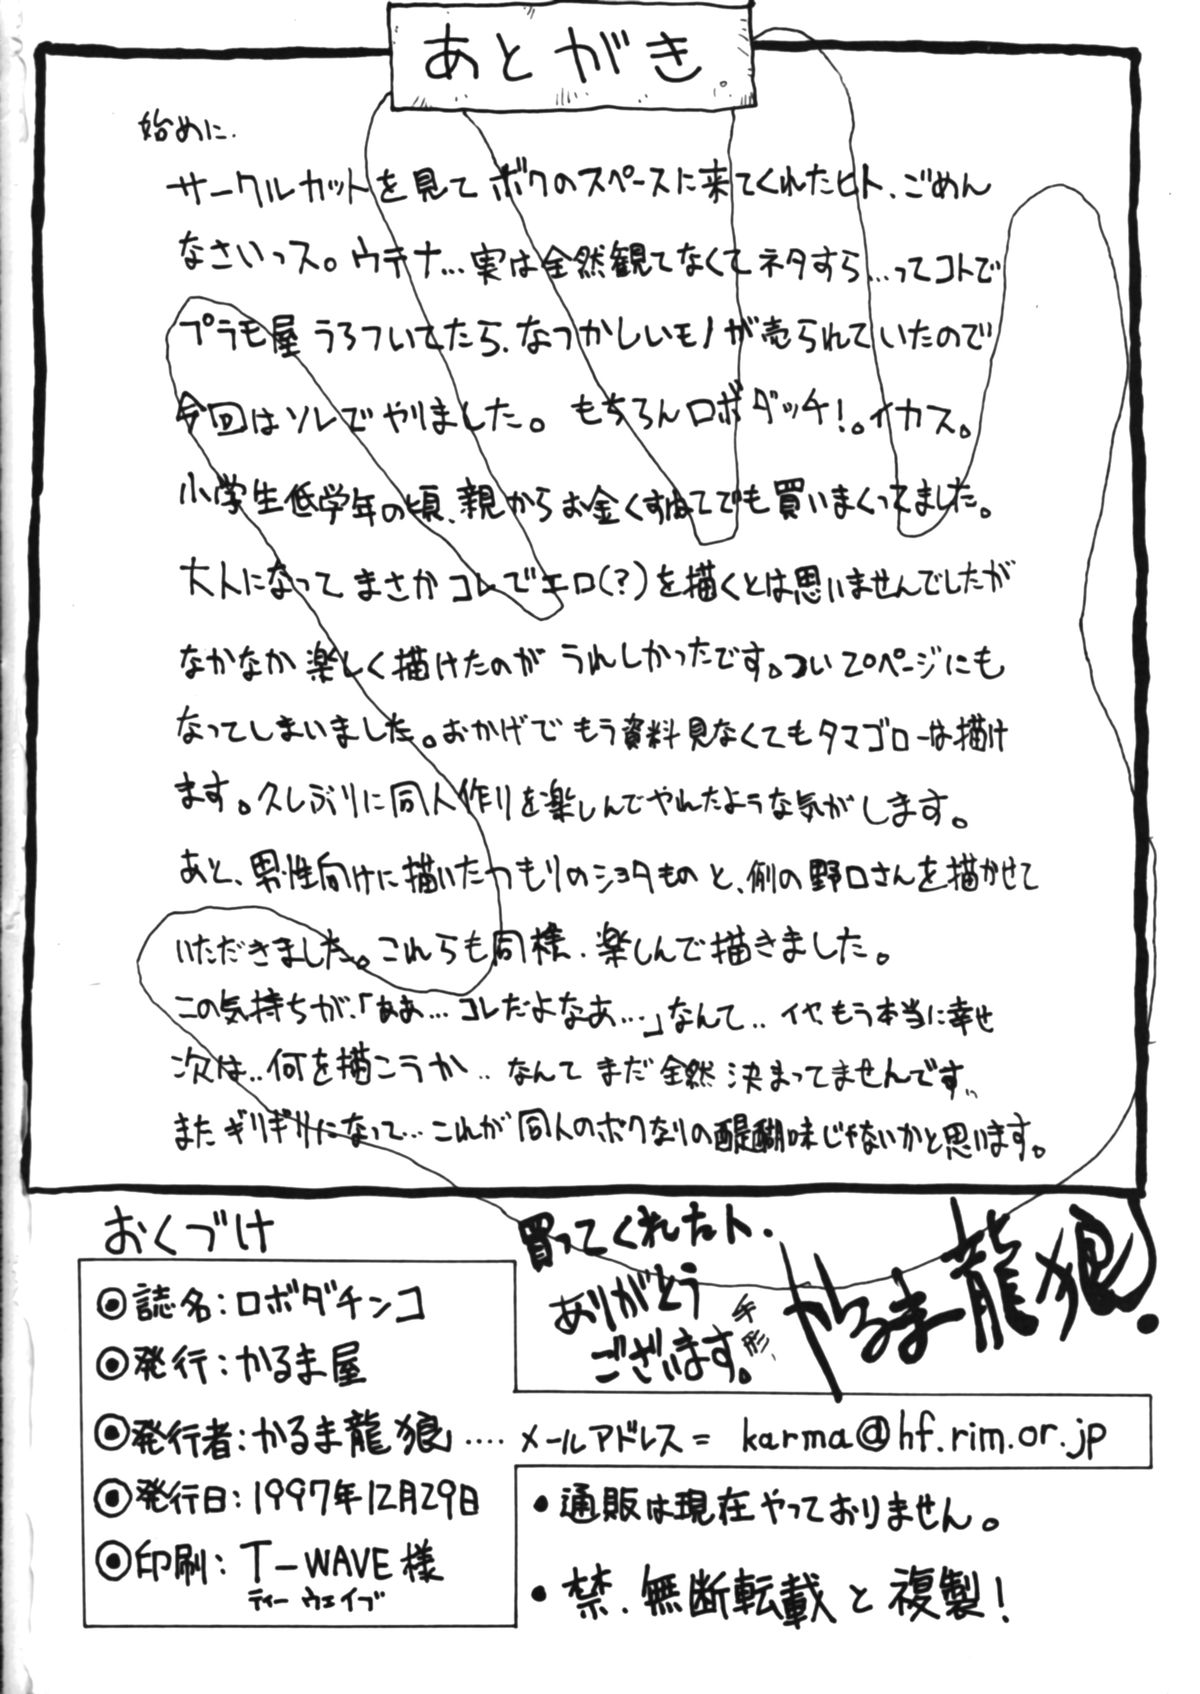 あとがき
始めに.
サークルカットを見てボクのスペースに来てくれたヒト、ごめん
なさいっス。ウテナ...実は全然観てなくてネタすら...ってコトで
プラモ屋うろついてたら、なつかしいモノが売られていたので
今回はソレでやりました。もちろんロボダッチ!。イカス。
小学生低学年の頃、親からお金くすねてでも買いまくってました。
大人になってまさかコレでエロ(?)を描くとは思いませんでしたが
なかなか楽しく描けたのがうれしかったです。つい20ページにも
なってしまいました。おかげでもう資料見なくてもタマゴローは描け
ます。久しぶりに同人作りを楽しんでやれたような気がします。
あと、男性向けに描いたつもりのショタものと、例の野口さんを描かせて
いただきました。これらも同様、楽しんで描きました。
この気持ちが、「ああ...コレだよなあ...」なんて.. イヤもう本当に幸せ
次は..何を描こうか..なんてまだ全然決まってませんです..
またギリギリになって...これが同人のボクなりの醍醐味じゃないかと思います。
おくづけ
◎誌名:ロボダチンコ
◎発行:かるま屋
◎発行者:かるま龍狼....メールアドレス= karma@hf.rim.or.jp
◎発行日:1997年12月29日
◎印刷:T-WAVE様
ティーウェイブ
買ってくれたト、
ありがとう
ございます。
手形、
かるま龍狼
•通販は現在やっておりません。
•禁、無断転載と複製!